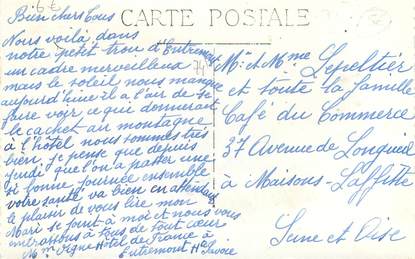 6€
CARTE POSTALE
Bien chers tous
Nous voilà dans
notre petit trou d'Entremont
un cadre merveilleux 74
mais le soleil nous manque
aujourd'hui il a l'air de se
faire voir ce qui donnerait
le cachet au montagne
à l'hôtel nous sommes très
bien, je pense que depuis
jeudi que l'on a passer une
si bonne journée ensemble
votre santé va bien en attendant
le plaisir de vous lire mon
Mari se joint à moi et nous vous
embrassons à tous de tout cœur
Mme Vigne Hôtel de France à
Entremont Hte Savoie
Mr et Mme Lepeltier
et toute la famille
Café du Commerce
37 Avenue de Longueil
à Maisons-Laffitte
Seine et Oise